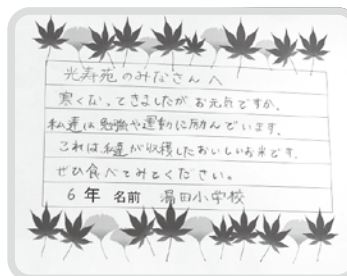 光寿苑のみなさんへ
寒くなってきましたがお元気ですか。
私達は勉強や運動に励んでいます。
これは私達が収穫したおいしいお米です。
ぜひ食べてみてください。
6年 名前 湯田小学校